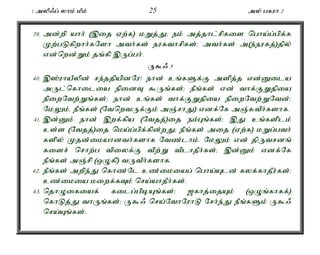 1 அலிஃப் லாம் மீம் 25 அல் பகரா 2
39. அன்றி யார் (இதை ஏற்க) மறுத்து, நம் அத்தாட்சிகளை பொய்ப்பிக்க
முற்படுகிறார்களோ அவர்கள் நரகவாசிகள்; அவர்கள் அ(ந்நரகத்)தில்
என்றென்றும் தங்கி இருப்பர்.
ருகூஃ 5
40. இஸ்ராயீலின் சந்ததியினரே! நான் உங்களுக்கு அளித்த என்னுடைய
அருட்கொடையை நினைவு கூருங்கள்; நீங்கள் என் வாக்குறுதியை
நிறைவேற்றுங்கள்; நான் உங்கள் வாக்குறுதியை நிறைவேற்றுவேன்;
மேலும், நீங்கள் (வேறெவருக்கும் அஞ்சாது) எனக்கே அஞ்சுவீர்களாக.
41. இன்னும் நான் இறக்கிய (வேதத்)தை நம்புங்கள்; இது உங்களிடம்
உள்ள (வேதத்)தை மெய்ப்பிக்கின்றது; நீங்கள் அதை (ஏற்க) மறுப்பவர்
களில் முதன்மையானவர்களாக வேண்டாம். மேலும் என் திருவசனங்
களைச் சொற்ப விலைக்கு விற்று விடாதீர்கள்; இன்னும் எனக்கே
நீங்கள் அஞ்சி (ஒழுகி) வருவீர்களாக.
42. நீங்கள் அறிந்து கொண்டே உண்மையைப் பொய்யுடன் கலக்காதீர்கள்;
உண்மையை மறைக்கவும் செய்யாதீர்கள்.
43. தொழுகையைக் கடைப்பிடியுங்கள்; ஜகாத்தையும் (ஒழுங்காகக்)
கொடுத்து வாருங்கள்; ருகூஃ செய்வோரோடு சேர்ந்து நீங்களும் ருகூஃ
செய்யுங்கள்.